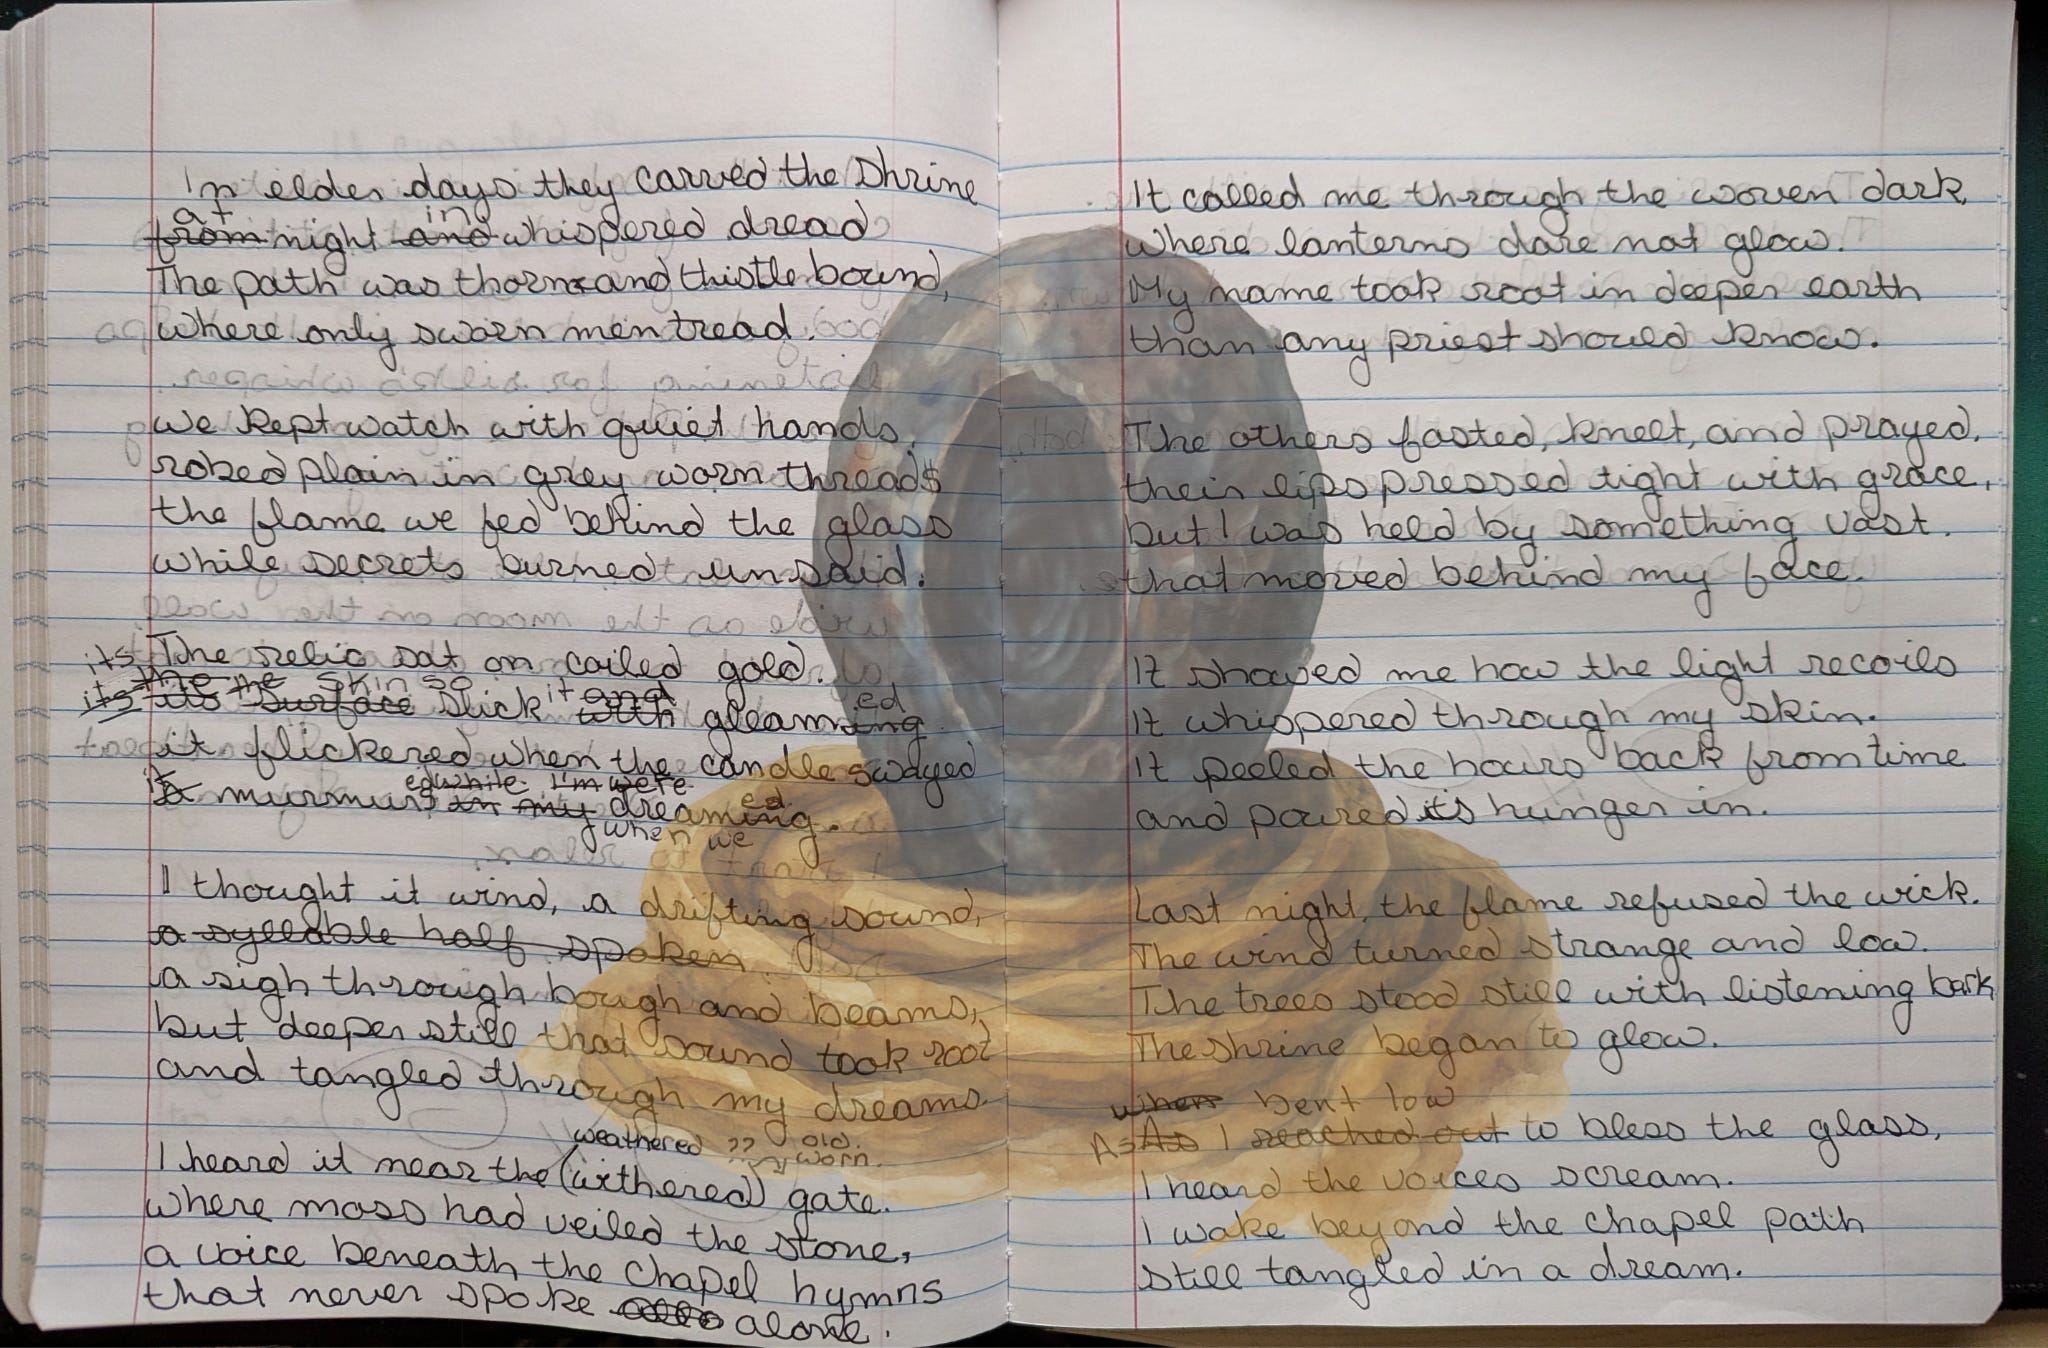 In elder days they carved the shrine
at in
from night and whispered dread
The path was thorn and thistle bound,
where only sworn men tread.
we kept watch with quiet hands,
robed plain in grey worn threads
the flame we fed behind the glass
while secrets burned unsaid.
its The relic sat on coiled gold.
the the skin so it and ed
its its surface slick with gleaming.
it flickered when the candle swayed
edwhile I'm were
it murmurs in my dreaming. ed
when we
I thought it wind, a drifting sound,
a syllable half spoken.
a sigh through bough and beams,
but deeper still that sound took root
and tangled through my dreams.
weathered ?? old.
my worn.
I heard it near the (withered) gate.
where moss had veiled the stone,
a voice beneath the chapel hymns
that never spoke alone.
It called me through the woven dark,
where lanterns dare not glow.
My name took root in deeper earth
than any priest should know.
The others fasted, knelt, and prayed,
their lips pressed tight with grace,
but I was held by something vast.
that moved behind my face.
It showed me how the light recoils
It whispered through my skin.
It peeled the hours back from time
and poured it's hunger in.
Last night, the flame refused the wick.
The wind turned strange and low.
The trees stood still with listening bark,
The shrine began to glow.
when bent low
As As I reached out to bless the glass,
I heard the voices scream.
I wake beyond the chapel path
still tangled in a dream.